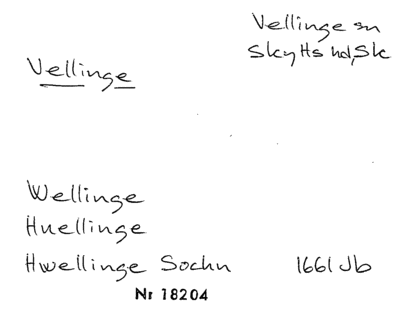 Vellinge sn
Skytts hd, Sk
Vellinge
Wellinge
Huellinge
Hwellinge Sochn 1661 Jb
Nr 18204